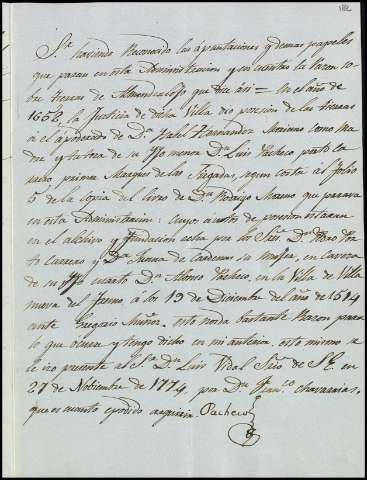 182
Sr. haviendo Reconocido las apuntaciones, y demas papeles
que paran en esta Administracion, y encuentro la Razon so-
bre tierras de Almendralejo que dice asi = En el año de
1652, la Justicia de dicha Villa dio posesion de las tierras
á el apoderado de Dª Isabel Fernandez Moreno como ma-
dre y tutora de su Ijo menor Dn. Luis Pacheco Portoca-
rrero primer Marques de las Torgadas, segun costa al folio
5 de la copia del libro de Dn. Rodrigo Moreno que parava
en esta Administracion: cuyos autos de posesion estaran
en el archivo y fundacion echa por los Sres. Dn. Pedro Porto
Carrero y Dª Juana de Cardenas su mujer, en cavera
de su Ijo cuarto Dn. Alonso Pacheco, en la Villa de Villa
nueva del Fresno á los 19 de Diciembre del año de 1514
ante Gregorio Muñoz. esto no da bastante Razon para
lo que ocurre y tengo dicho en mi anterior. esto mismo se
le izo presente al Sr. Dn. Luis Vidal Srio. de S. E. en
27 de Nobiembre de 1774, por Dn. Franco. Chavarrias,
que es cuanto e podido adquirir. Pacheco